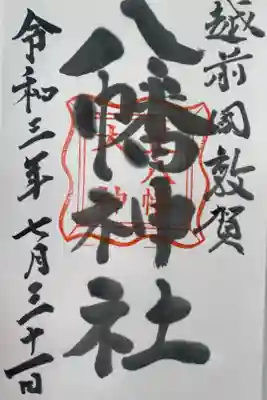 越前国敦賀
八幡神社
令和三年七月三十一日